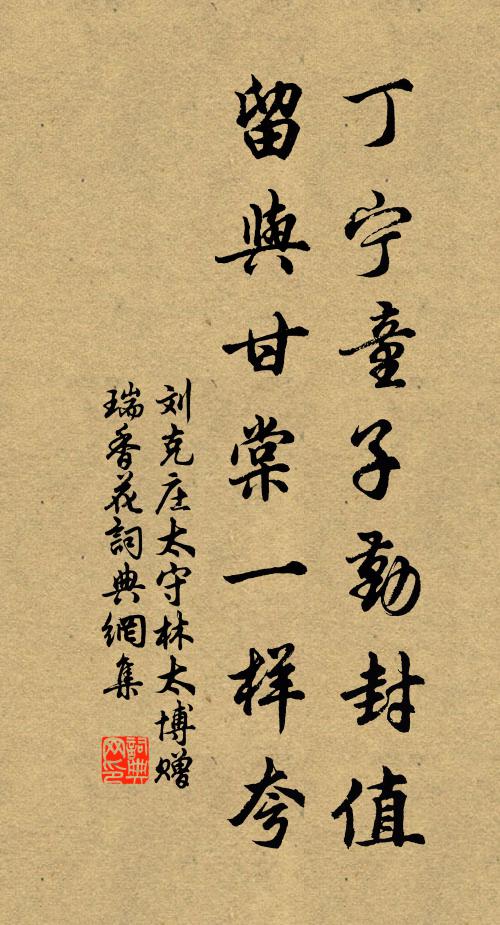 丁宁童子勤封值
留與甘棠一样夸
刘克庄太守林太博赠
瑞香花詞典網集
詞典网印